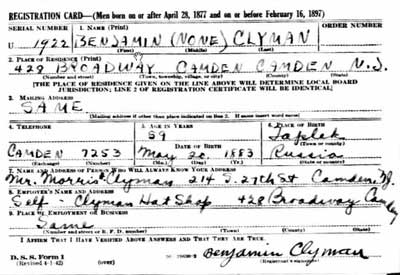 REGISTRATION CARD—(Men born on or after April 28, 1877 and on or before February 16, 1897)
SERIAL NUMBER 1. NAME (Print) ORDER NUMBER
U 1922 BENJAMIN (NONE) CLYMAN
(First) (Middle) (Last)
2. PLACE OF RESIDENCE (Print)
428 BROADWAY CAMDEN CAMDEN N.J.
(Number and street) (Town, township, village, or city) (County) (State)
[THE PLACE OF RESIDENCE GIVEN ON THE LINE ABOVE WILL DETERMINE LOCAL BOARD
JURISDICTION; LINE 2 OF REGISTRATION CERTIFICATE WILL BE IDENTICAL]
3. MAILING ADDRESS
SAME
[Mailing address if other than place indicated on line 2. If same insert word same]
4. TELEPHONE 5. AGE IN YEARS 6. PLACE OF BIRTH
59
DATE OF BIRTH (Town or county)
CAMDEN 7253 May 20. 1883 Russia
(Exchange) (Number) (Mo.) (Day) (Yr.) (State or country)
7. NAME AND ADDRESS OF PERSON WHO WILL ALWAYS KNOW YOUR ADDRESS
Mr. Morris Clyman, 214 S. 27th St Camden, N.J.
8. EMPLOYER'S NAME AND ADDRESS
Self - Clyman Hat Shop 428 Broadway Camden
9. PLACE OF EMPLOYMENT OR BUSINESS
Same
(Number and street or R. F. D. number) (Town) (County) (State)
I AFFIRM THAT I HAVE VERIFIED ABOVE ANSWERS AND THAT THEY ARE TRUE.
D. S. S. Form 1
(Revised 4-1-42) (over) Benjamin Clyman
(Registrant's signature)